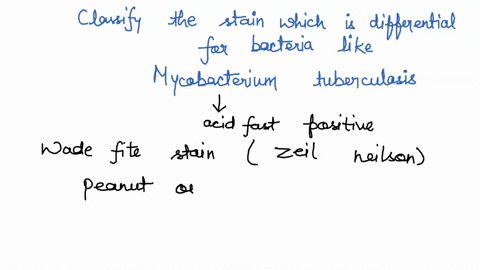 Classify the stain which is differential
for bacteria like
Mycobacterium tuberculosis
acid fast positive
Wade fite stain ( Zeil neilson)
Peanut or